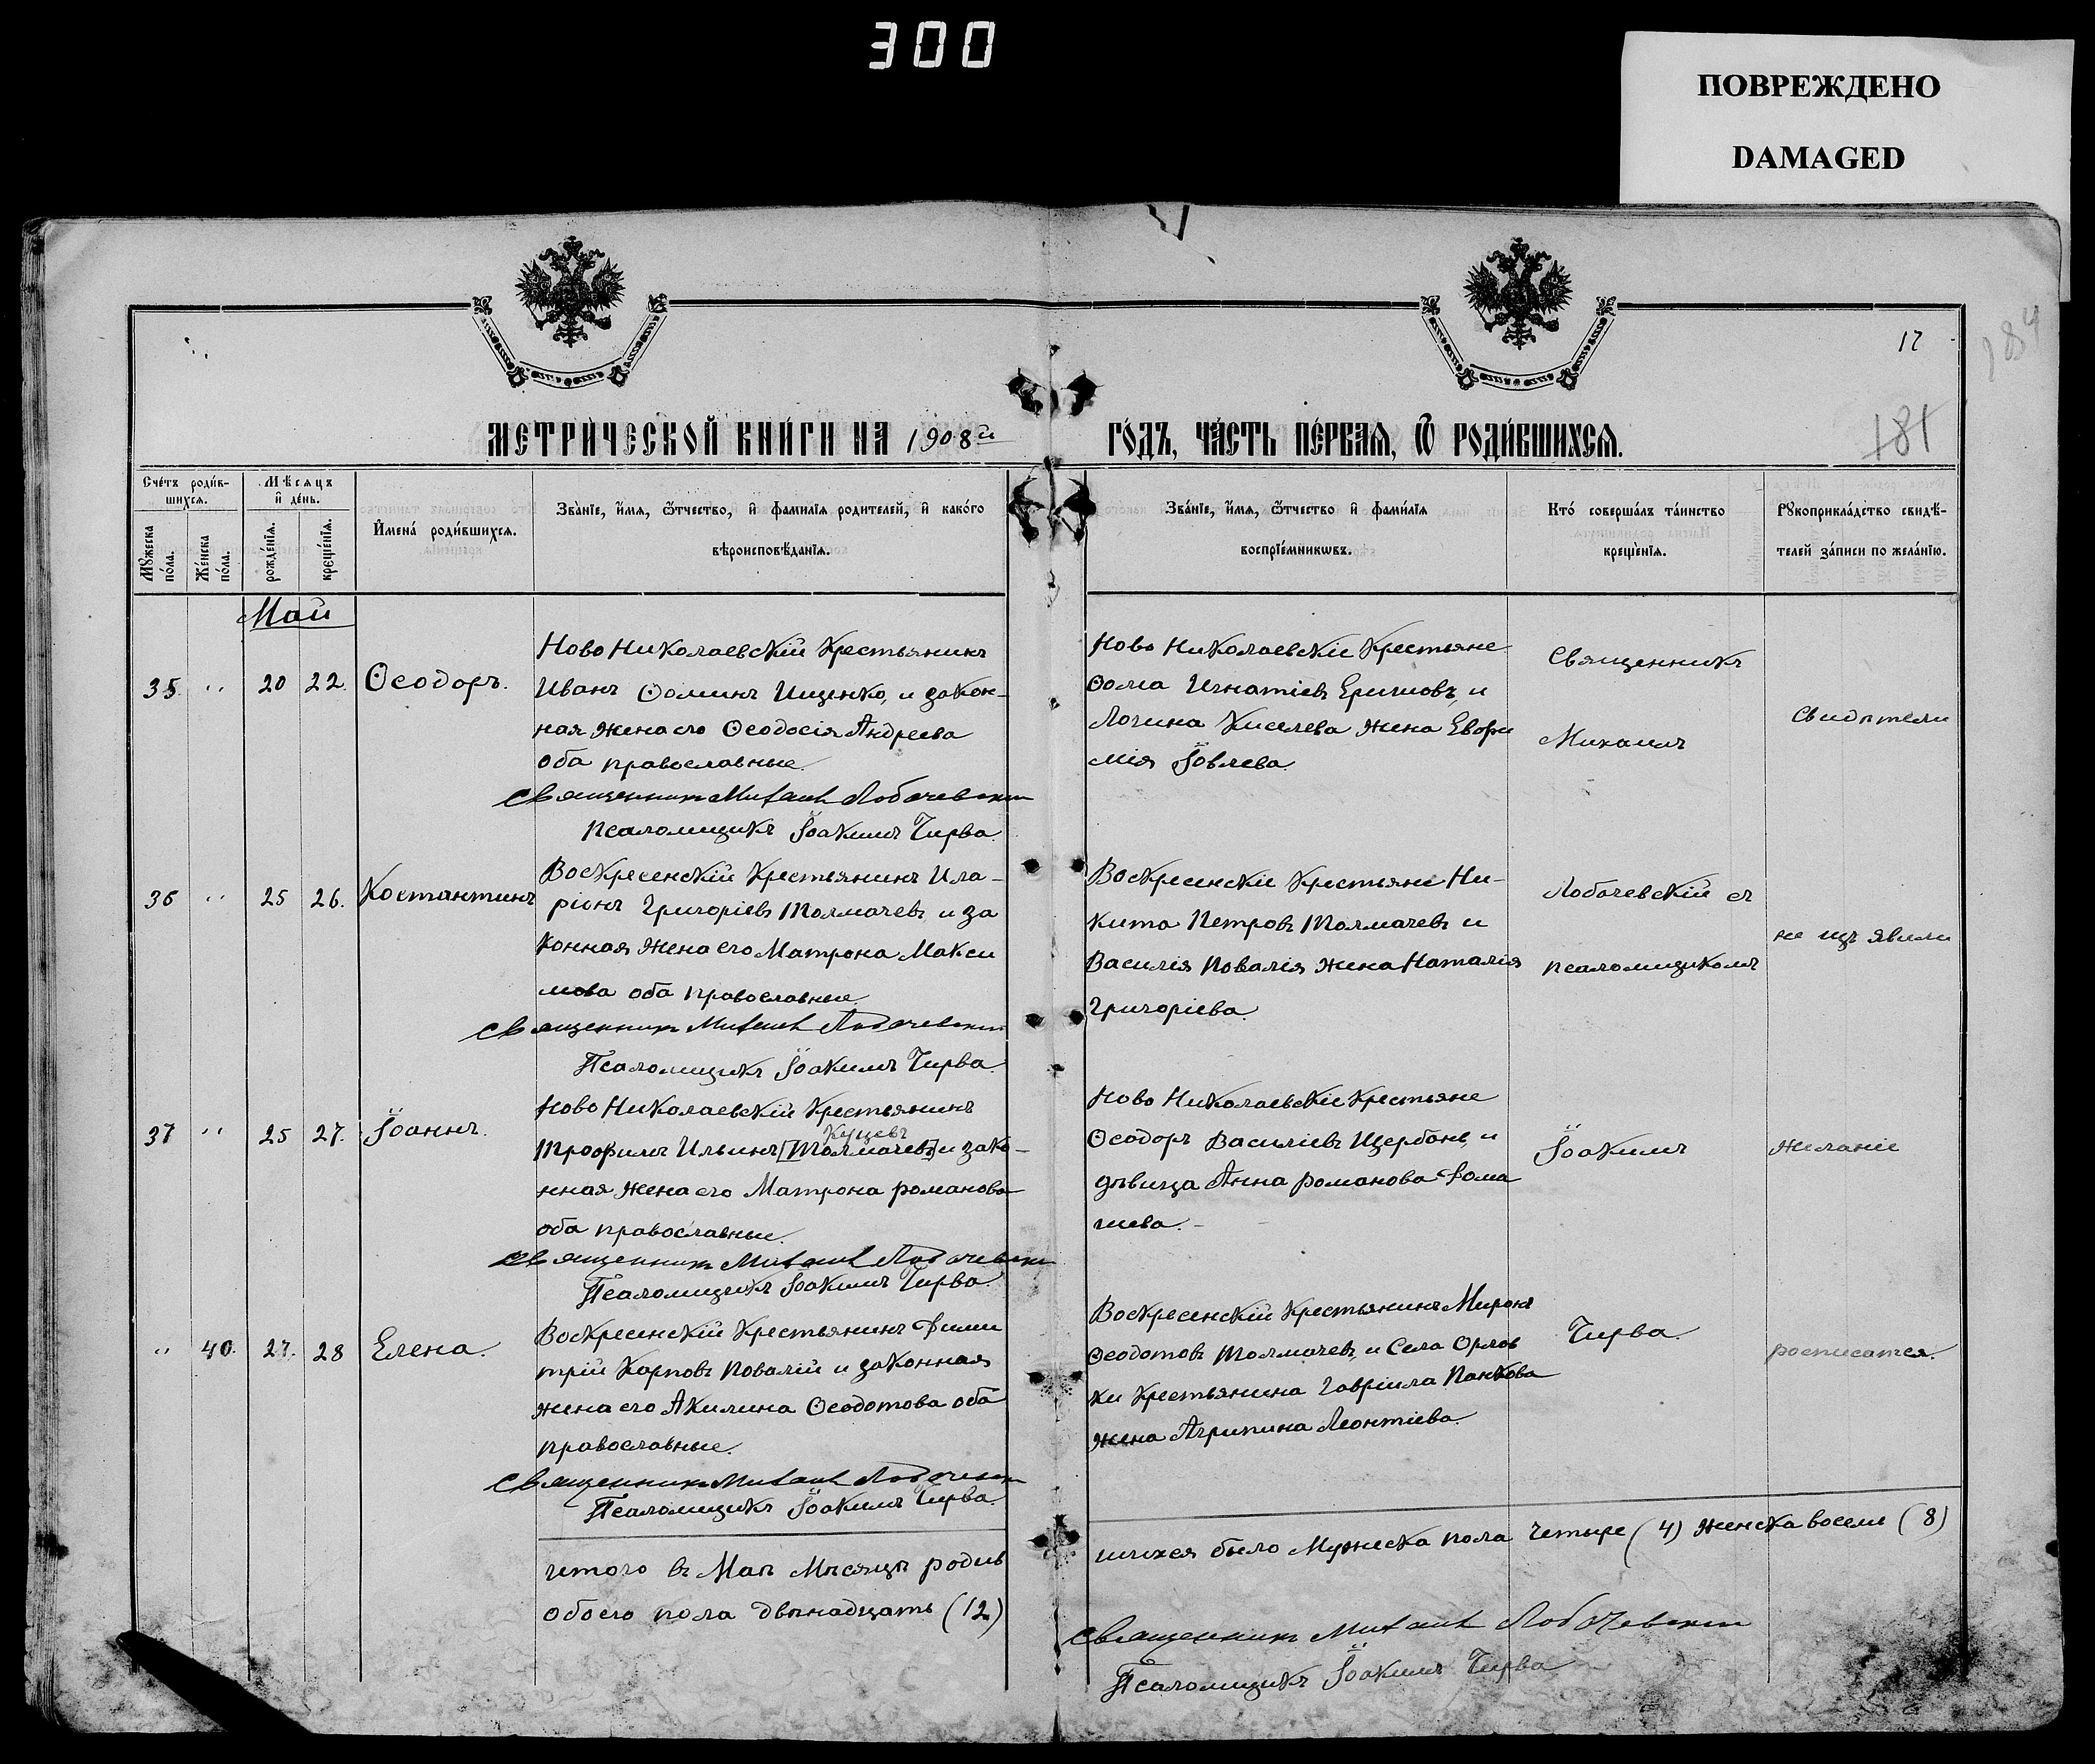 300
ПОВРЕЖДЕНО
DAMAGED
17
184
181
МЕТРИЧЕСКОЙ КНИГИ НА 1908й ГОДЪ, ЧАСТЬ ПЕРВАЯ, Ѿ РОДИВШИХСЯ.
Счетъ родив-
шихся.
Мѣсяцъ
и день.
Мужеска
пола.
Женска
пола.
рожденія.
крещенія.
Имена родившихся.
Званіе, имя, ѿтчество, и фамилія родителей, и какого
вѣроисповѣданія.
Званіе, имя, ѿтчество и фамилія
воспріемникѡвъ.
Кто совершалъ таинство
крещенія.
Рукоприкладство свидѣ-
телей записи по желанію.
Май
35. " 20 22. Ѳеодоръ.
Ново Николаевскій Крестьянинъ
Иванъ Ѳоминъ Ищенко, и закон-
ная жена его Ѳеодосія Андреева
оба православные.
Священникъ Михаилъ Лобачевскій
Псаломщикъ Іоакимъ Чирва.
Ново Николаевскіе Крестьяне
Ѳома Игнатіевъ Еришовъ, и
Логина Киселева жена Евфи
мія Іовлева.
36 " 25 26. Костантинъ
Воскресенскій Крестьянинъ Ила-
ріонъ Григоріевъ Толмачевъ и за
конная жена его Матрона Макси
мова оба православные.
Священникъ Михаилъ Лобачевскій
Псаломщикъ Іоакимъ Чирва.
Воскресенскіе Крестьяне Ни-
кита Петровъ Толмачевъ и
Василія Повалія жена Наталія
Григоріева.
37 " 25 27. Іоаннъ.
Ново Николаевскій Крестьянинъ
Куцевъ
Трофимъ Ильинъ [Толмачевъ] и зако-
нная жена его Матрона Романова
оба православные.
Священникъ Михаилъ Лобачевскій
Псаломщикъ Іоакимъ Чирва.
Ново Николаевскіе Крестьяне
Ѳеодоръ Василіевъ Щербань, и
дѣвица Анна Романова
" 40. 27. 28 Елена.
Воскресенскій Крестьянинъ Дими
трій Карповъ Повалій и законная
жена его Акилина Ѳеодотова оба
православные.
Священникъ Михаилъ Лобачевскій
Псаломщикъ Іоакимъ Чирва.
Воскресенскій Крестьянинъ Миронъ
Ѳеодотовъ Толмачевъ, и Села Орлов
ки Крестьянина Гавріила Панкова
жена Агрипина Леонтіева.
Священникъ
Михаилъ
Лобачевскій съ
псаломщикомъ
Іоакимъ
Чирва.
Свидѣтели
не изъявили
желаніе
росписатся.
Итого въ Маѣ Мѣсяцѣ родив
шихся было Мужеска пола Четыре (4) Женска восемь (8)
обоего пола двѣнадцать (12)
Священникъ Михаилъ Лобачевскій
Псаломщикъ Іоакимъ Чирва